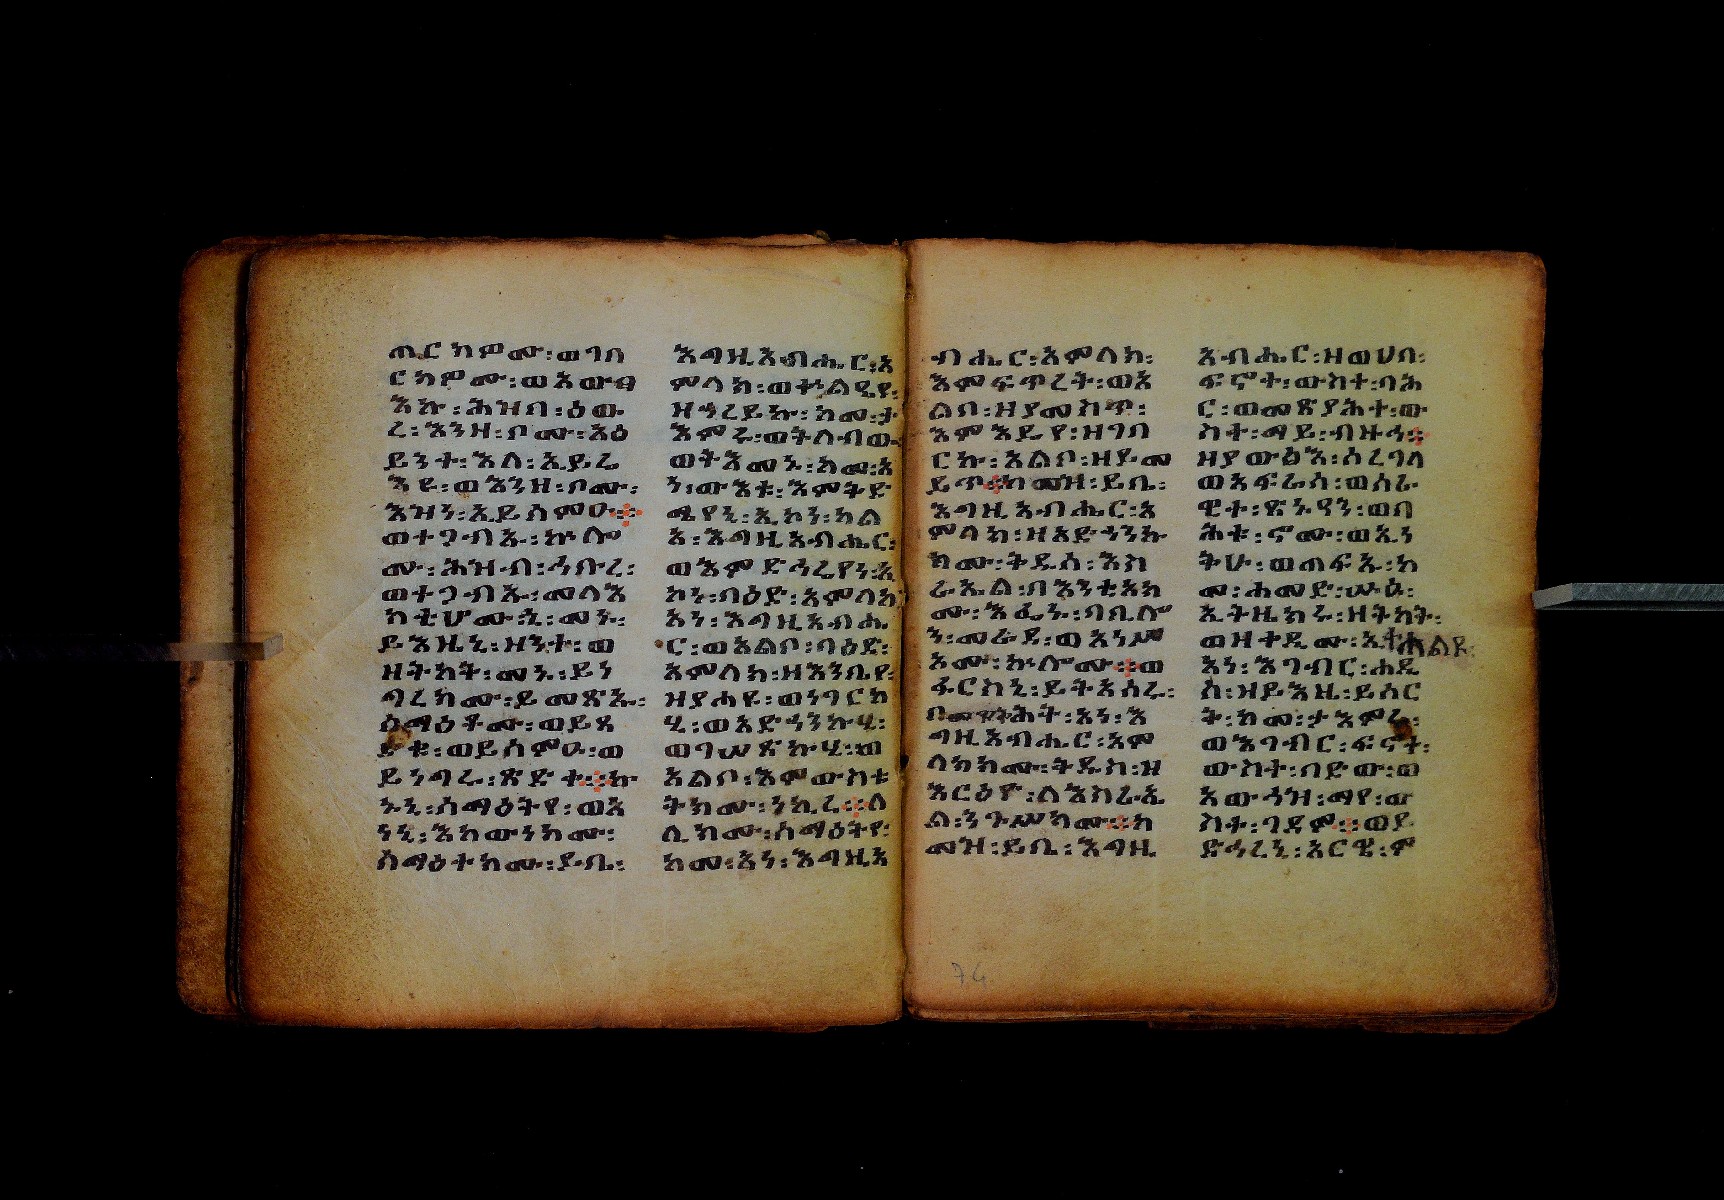 ጠርክምሙ፡ወገበ
ርክምሙ፡ወአውፃ
እኩ፡ሕዝበ፡ዕው
ረ፡እንዘ፡ቦሙ፡አዕ
ይንት፡እለ፡ኢይሬ
እዩ፡ወእንዘ፡ቦሙ፡
እዝን፡ኢይሰምዑ፨
ወተጋብኡ፡ኵሎ
ሙ፡ሕዝብ፡ኅቡረ፡
ወተጋብኡ፡መላእ
ክቲሆሙኒ፡መኑ፡
ይእዜኒ፡ዘንተ፡ወ
ዘትካት፡መኑ፡ይነ
ግረክሙ፡ይመጽኡ፡
ሰማዕቶሙ፡ወይጸ
ድቁ፡ወይሰምዑ፡ወ
ይነግሩ፡ጽድተ፨ኩ
ኑኒ፡ሰማዕትየ፡ወአ
ነኒ፡እከውነክሙ፡
ሰማዕተክሙ፡ይቤ፡
እግዚአብሔር፡አ
ምላክ፡ወቍልዔየ፡
ዘኀረይኩ፡ከመ፡ታ
እምሩ፡ወትለብው
ወትእመኑ፡ከመ፡አ
ነ፡ውእቱ፡እምቅድ
ሜየኒ፡ኢኮነ፡ካል
እ፡እግዚአብሔር፡
ወእምድኅሬየኒ፡ኢ
ኮነ፡ባዕድ፡አምላክ
አነ፡እግዚአብሔ
ር፡ወአልቦ፡ባዕድ፡
አምላከ፡ዘእንቤየ፡
ዘያሐዩ፡ወነገርክ
ሂ፡ወአድኀንኩሂ፡
ወገሠጽኩሂ፡ወ
አልቦ፡እምውስቴ
ትክሙ፡ነኪረ፨ለ
ሊክሙ፡ሰማዕትየ፡
ከመ፡አነ፡እግዚአ
ብሔር፡አምላክ፡
እምፍጥረት፡ወአ
ልቦ፡ዘያመስጥ፡
እምእዴየ፡ዘገበ
ርኩ፡አልቦ፡ዘይመ
ይጥ፨ከመዝ፡ይቤ፡
እግዚአብሔር፡አ
ምላክ፡ዘአድኀንኩ
ክሙ፡ቅዱሰ፡እስ
ራኤል፡በእንቲአክ
ሙ፡እፌኑ፡ባቢሎ
ን፡መራደ፡ወአነሥ
ኦሙ፡ኵሎሙ፨ወ
ፋርስኒ፡ይትአሰሩ፡
በመዋቅሕት፡አነ፡እ
ግዚአብሔር፡አም
ላክክሙ፡ቅዱስ፡ዘ
እርዕዮ፡ለእስራኤ
ል፡ንጉሥክሙ፨ከ
መዝ፡ይቤ፡እግዚ
አብሔር፡ዘወሀበ፡
ፍኖተ፡ውስተ፡ባሕ
ር፡ወመጽያሕተ፡ው
ስተ፡ማይ፡ብዙኅ፨
ዘያውፅእ፡ሰረገላ
ወአፍራሰ፡ወሰራ
ዊተ፡ጽኑዓን፡ወበ
ሕቱ፡ኖሙ፡ወኢነ
ቅሁ፡ወጠፍኡ፡ከ
መ፡ሐመድ፡ሡዕ፡
ኢትዜከሩ፡ዘትካት፡
ወዘቀዲሙ፡ኢትሐልዩ፡
አነ፡እገብር፡ሐዲ
ሰ፡ዝይእዜ፡ይሰር
ቅ፡ከመ፡ታእምሩ፡
ወእገብር፡ፍኖተ፡
ውስተ፡በድው፡ወ
አውኅዝ፡ማየ፡ው
ስተ፡ገዳም፨ወይ
ድኅረኒ፡አርዌ፡ም
74